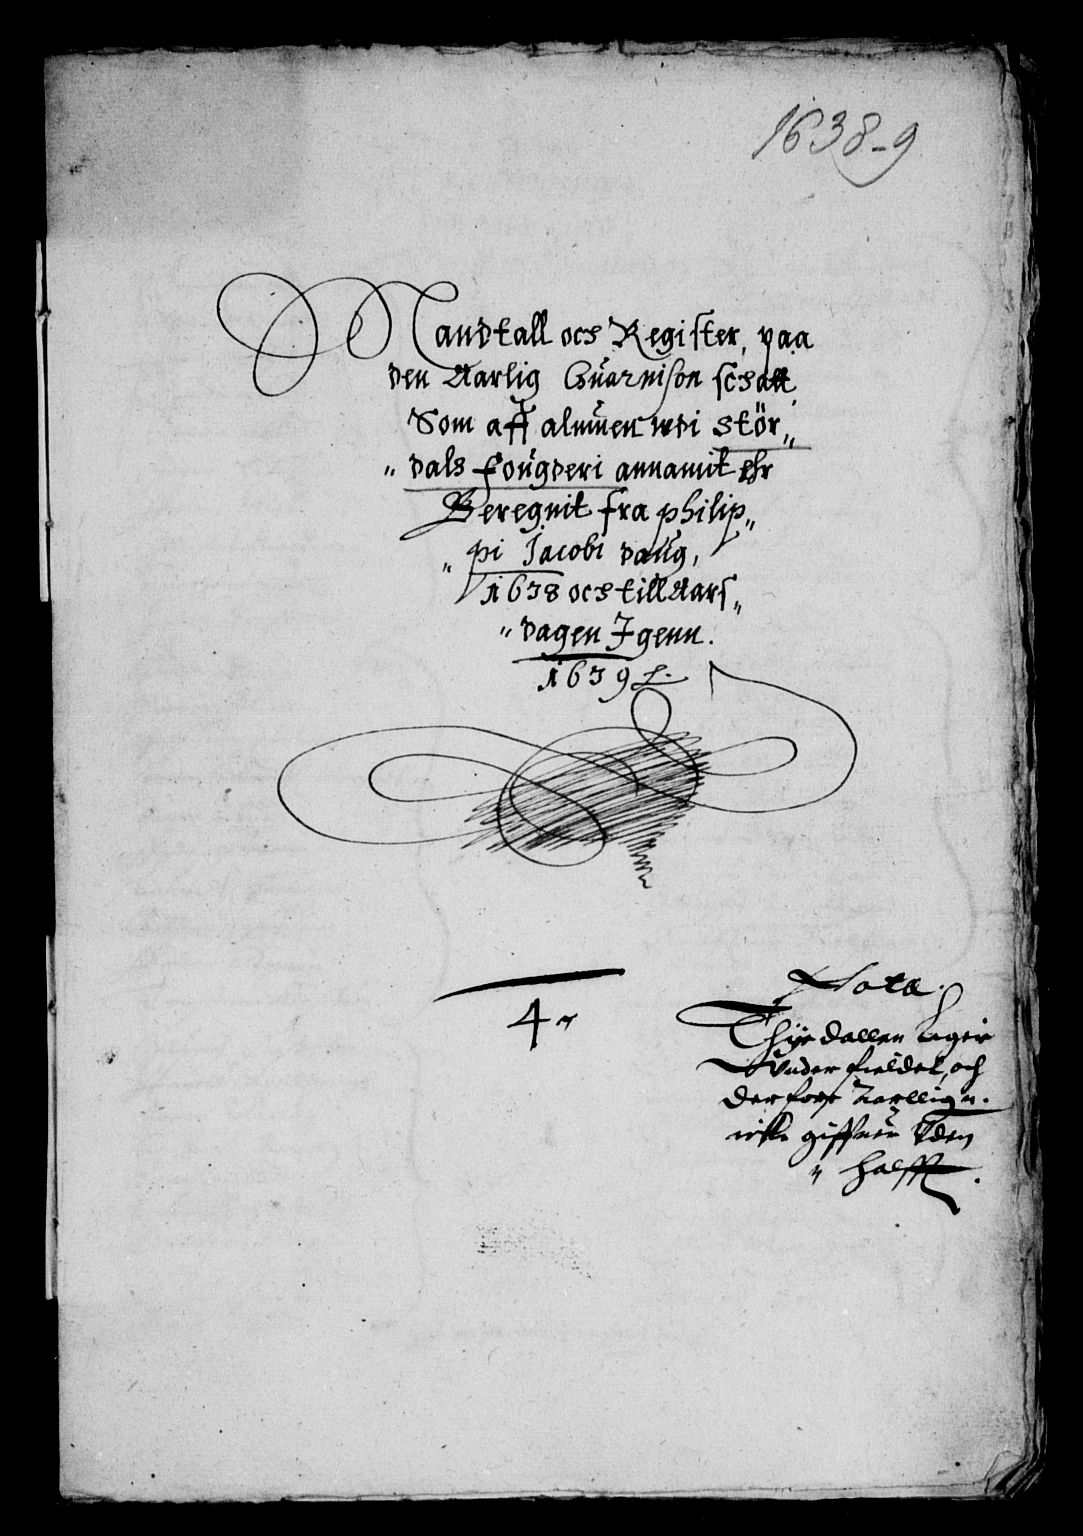 1638-9
Mandtall och Register, paa
den Aarlig Guarnison schatt
Som aff almuen udi Stör„
„dals fougderi annamit ehr
Beregnit fra philip„
„pi Jacobi daug,
1638 och till Aars„
„dagen Igenn.
1639
4
Nota.
Thydallen liger
Under fieldet, och
der for Aarllign.
icke giffuer uden
„ halfft.